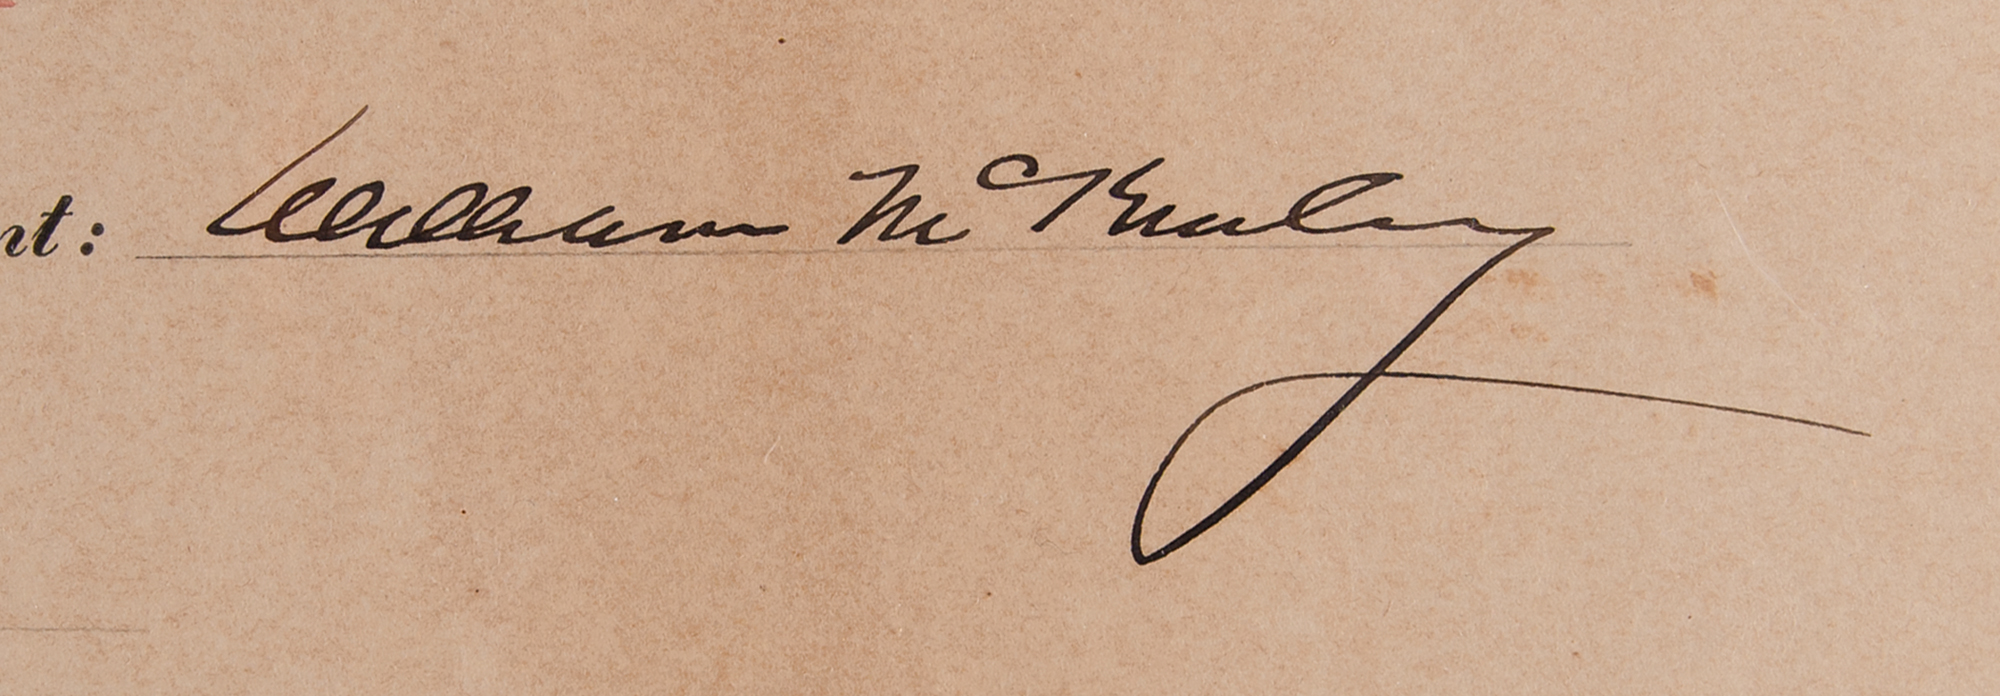 nt: William McKinley